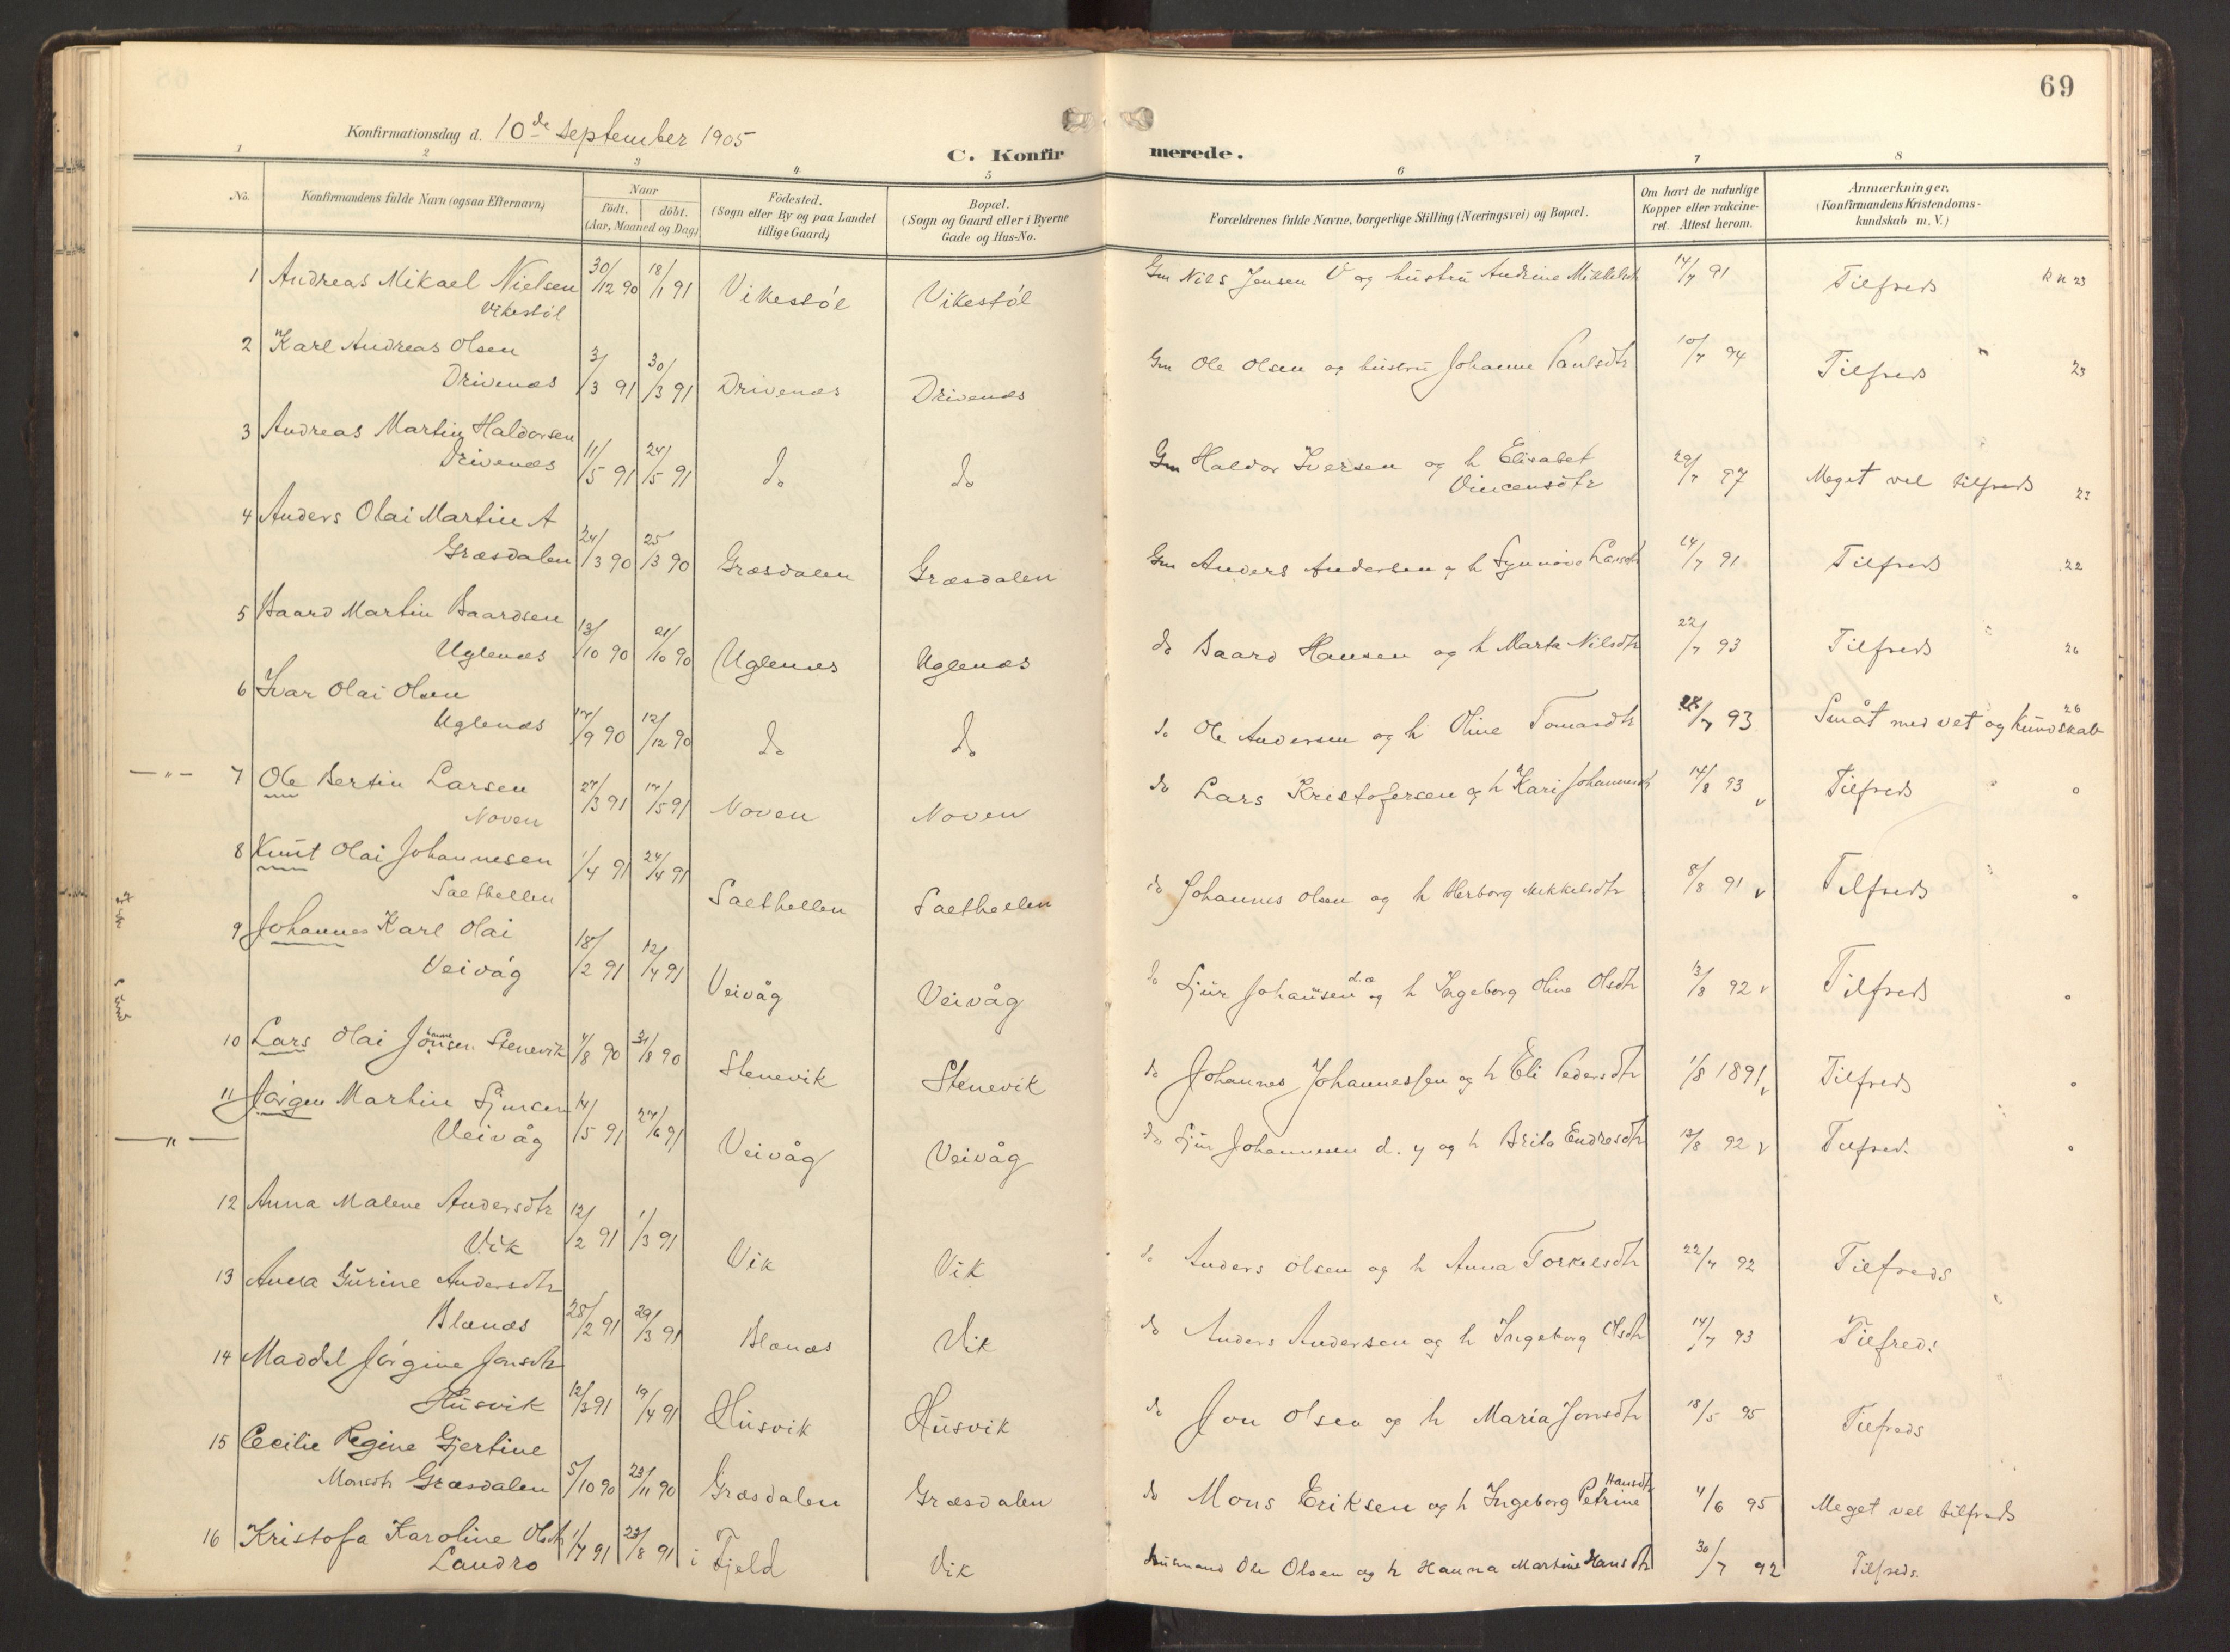 69
Konfirmationsdag d. 10de September 1905
C. Konfirmerede.
1 2 3 4 5 6 7 8
No.
Konfirmandens fulde Navn (ogsaa Efternavn)
Naar
født. døbt.
(Aar, Maaned og Dag)
Fødested.
(Sogn eller By og paa Landet
tillige Gaard)
Bopæl.
(Sogn og Gaard eller i Byerne
Gade og Hus-No.
Forældrenes fulde Navne, borgerlige Stilling (Næringsvei) og Bopæl.
Om havt de naturlige
Kopper eller vakcine-
ret. Attest herom.
Anmærkninger,
(Konfirmandens Kristendoms-
kundskab m. V.)
1 Andreas Mikael Nielsen 30/12 90 18/1 91 Vikestøl Vikestøl Gm Nils Jensen V og hustru Andrine Mikkelsdtr 14/7 91 Tilfreds 23
Vikestøl
2 Karl Andreas Olsen
Drivenæs 3/3 91 30/3 91 Drivenæs Drivenæs Gm Ole Olsen og hustru Johanne Paulsdtr 10/7 94 Tilfreds " 23
3 Andreas Martin Haldorsen
Drivenæs 11/5 91 24/5 91 do do Gm Haldor Iversen og h Elisabet
Vincensdtr 29/7 97 Meget vel tilfreds 23
4 Anders Olai Martin A
Græsdalen 24/3 90 25/3 90 Græsdalen Græsdalen Gm Anders Andersen og h Synnøve Larsdtr 14/7 91 Tilfreds 22
5 Baard Martin Baardsen
Uglenæs 13/10 90 21/10 90 Uglenæs Uglenæs do Baard Hansen og h Marta Nilsdtr 22/7 93 Tilfreds " 26
6 Ivar Olai Olsen
Uglenæs 17/9 90 12/12 90 do do do Ole Andersen og h Oline Tomasdtr /7 93 Småt med vet og kundskab 26
— " — 7 Ole Bertin Larsen
Noven 27/3 91 17/5 91 Noven Noven do Lars Kristofersen og h Kari Johannesdtr 14/8 93 v Tilfreds "
8 Knut Olai Johannesen
Saethellen 1/4 91 24/4 91 Saethellen Saethellen do Johannes Olsen og h Herborg Mikkelsdtr 8/8 91 v Tilfreds "
9 Johannes Karl Olai
Veivåg 18/2 91 12/4 91 Veivåg Veivåg do Sjur Johansen d.æ og h Ingeborg Oline Olsdtr 13/8 92 v Tilfreds
10 Lars Olai Jonsen Stenevik 4/8 90 31/8 90 Stenevik Stenevik do Johannes Johannessen og h Eli Pedersdtr 1/8 1891 v Tilfreds
11 Jørgen Martin Sjursen
— " — Veivåg 14/5 91 27/6 91 Veivåg Veivåg do Sjur Johannesen d. y og h Brita Endresdtr 13/8 92 v Tilfreds
12 Anna Malene Andersdtr
Vik 12/2 91 1/3 91 Vik Vik do Anders Olsen og h Anna Torkelsdtr 22/7 92 Tilfreds
13 Anna Gurine Andersdtr
Blænæs 28/2 91 29/3 91 Blænæs Vik do Anders Andersen og h Ingeborg Olsdtr 14/7 93 Tilfreds
14 Maddel Jørgine Jonsdtr
Husvik 12/3 91 19/4 91 Husvik Husvik do Jon Olsen og h Maria Jonsdtr 18/5 95 Tilfreds
15 Cecilie Regine Gjertine
Monsdtr Græsdalen 5/10 90 23/11 90 Græsdalen Græsdalen do Mons Eriksen og h Ingeborg Petrine Hansdtr 4/6 95 Meget vel tilfreds
16 Kristofa Karoline Olsdtr
Landro 1/7 91 23/8 91 i Fjeld Vik Husmand Ole Olsen og h Hanna Martine Hansdtr 30/7 92 Tilfreds.